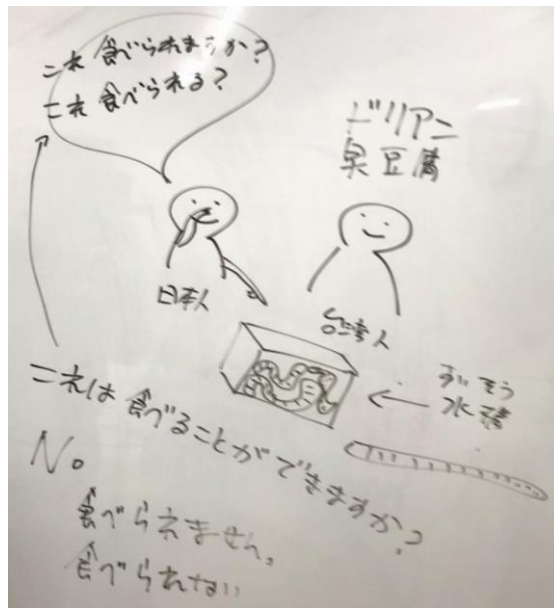 これ 食べられますか?
これ 食べられる?
ドリアン
臭豆腐
日本人
台湾人
すいそう
水槽
これは 食べることができますか?
No
食べられません。
食べられない